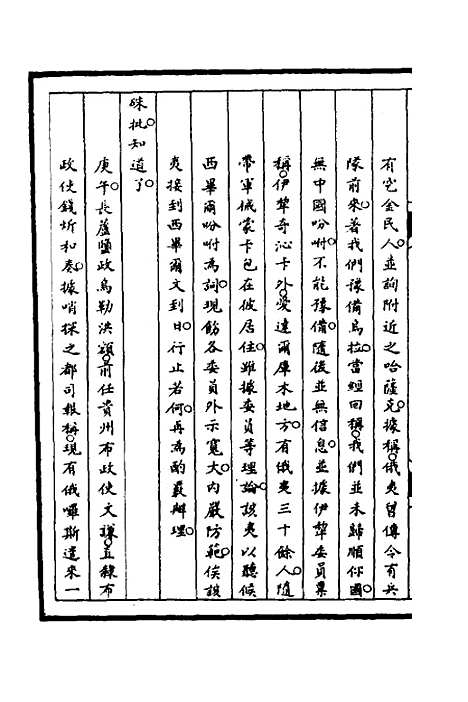 有它金民人。並詢附近之哈薩克。據稱。俄夷曾傳今有兵
隊前來。著我們豫備烏拉。當經回稱。我們並未歸順你國。
無中國吩咐。不能豫備。隨後並無信息。並據伊犂委員稟
稱。伊犂奇沁卡外。愛達爾庫木地方。有俄夷三十餘人。隨
帶軍械蒙卡包在彼居住。雖據委員等理論。該夷以聽候
西畢爾吩咐為詞。現飭各委員外示寬大。內嚴防範。俟該
夷接到西畢爾文到日。行止若何。再為酌覈辦理。
硃批。知道了。
庚午。長蘆鹽政烏勒洪額。前任貴州布政使文謙。直隸布
政使錢炘和奏。據哨探之都司報稱。現有俄囉斯遣來一